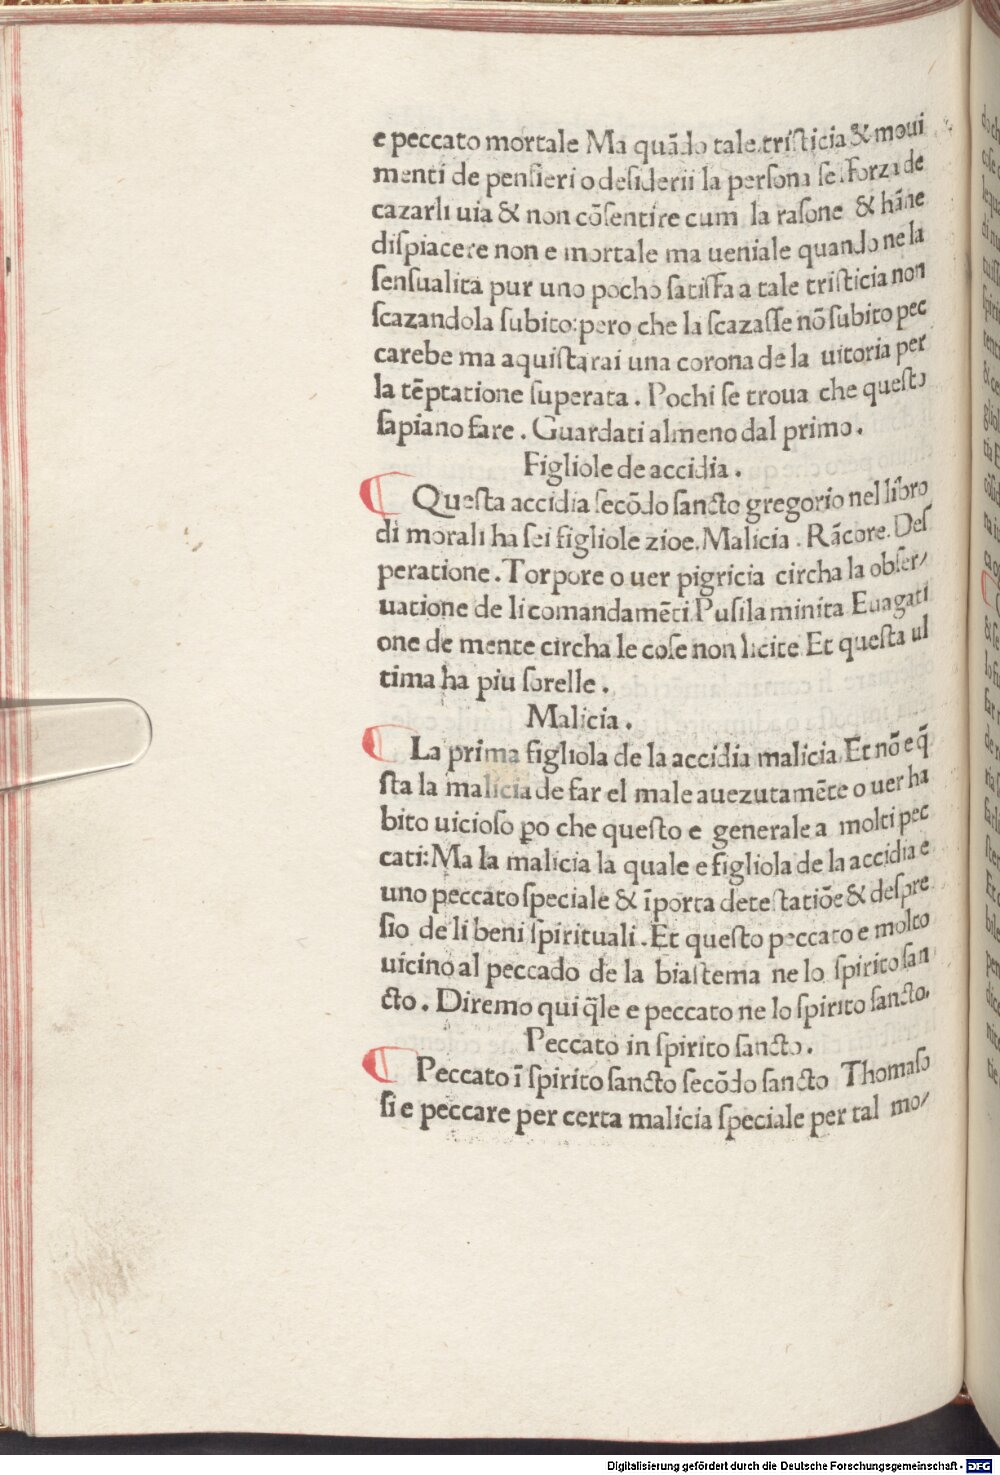 e peccato mortale Ma quãdo tale tristicia & moui
menti de pensieri o desiderii la persona se sforza de
cazarli uia & non cõsentire cum la rasone & hãne
dispiacere non e mortale ma ueniale quando ne la
sensualita pur uno pocho satisfa a tale tristicia non
scazandola subito: pero che la scazasse nõ subito pec
carebe ma aquistarai una corona de la uitoria per
la tẽptatione superata. Pochi se troua che questo
sapiano fare. Guardati almeno dal primo.
Figliole de accidia.
Questa accidia secõdo sancto gregorio nel libro
di morali ha sei figliole zioe. Malicia. Rãcore. Des
peratione. Torpore o uer pigricia circha la obser/
uatione de li comandamẽti Pusilaminita Euagati
one de mente circha le cose non licite Et questa ul
tima ha piu sorelle.
Malicia.
La prima figliola de la accidia malicia. Et nõ e q̃
sta la malicia de far el male auezutamẽte o uer ha
bito uicioso ꝑo che questo e generale a molti pec
cati: Ma la malicia la quale e figliola de la accidia e
uno peccato speciale & ĩporta detestatiõe & despre
sio de li beni spirituali. Et questo peccato e molto
uicino al peccado de la biastema ne lo spirito san
cto. Diremo qui q̃le e peccato ne lo spirito sancto.
Peccato in spirito sancto.
Peccato ĩ spirito sancto secõdo sancto Thomaso
si e peccare per certa malicia speciale per tal mo/
Digitalisierung gefördert durch die Deutsche Forschungsgemeinschaft - DFG